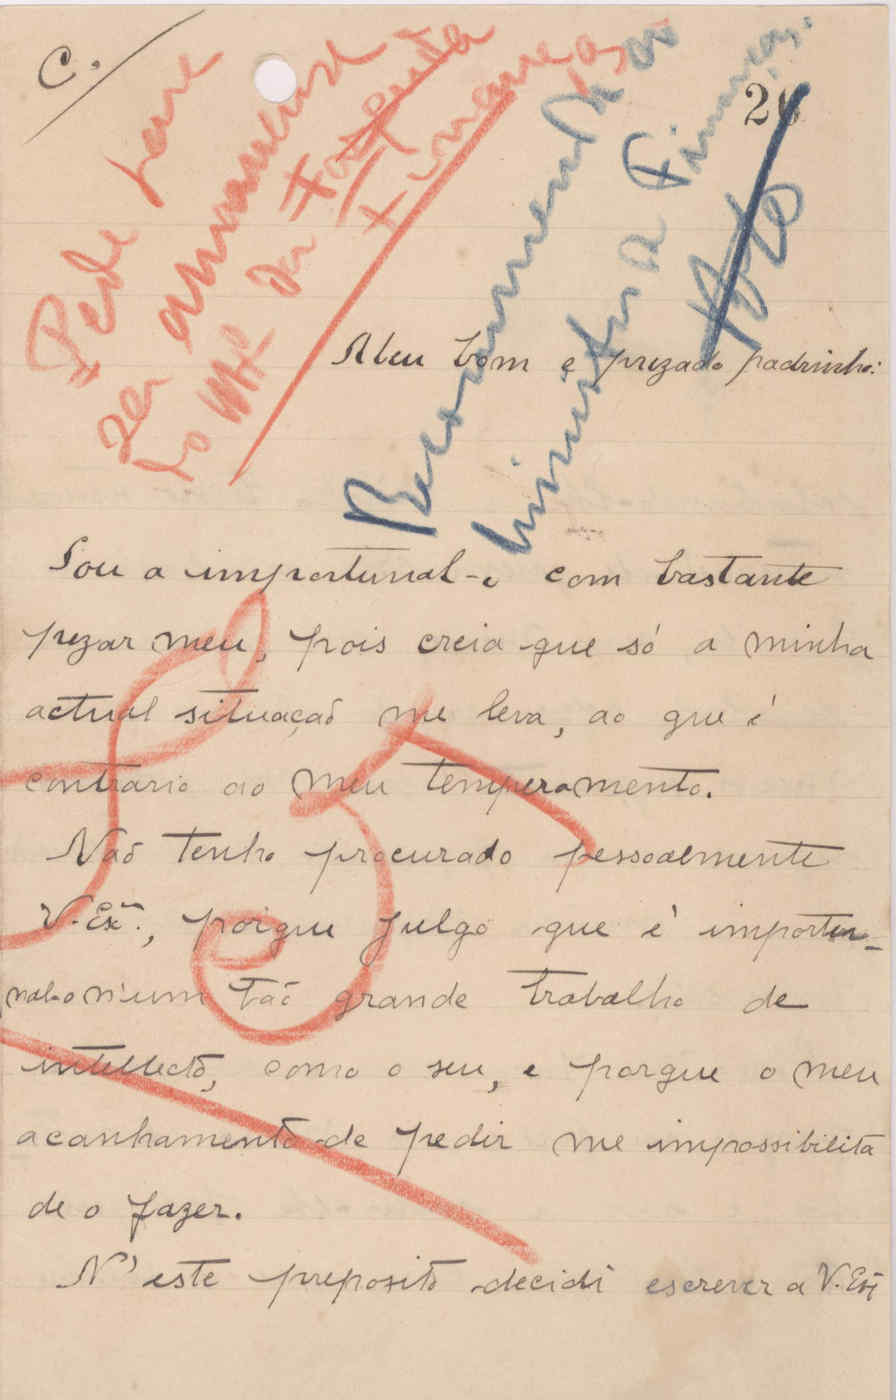 C.
26
Pede para
ser amanuense
do Mº da Fazenda
Finanças
Recommendar ao
ministro da Finanças.
Meu bom e prezado padrinho:
Sou a importunal-o com bastante
pezar meu, pois creia que só a minha
actual situação me leva, ao que é
contrario ao meu temperamento.
Não tenho procurado pessoalmente
V. Exª., porque julgo que é importu-
nal-o n'um tão grande trabalho de
intellecto, como o seu, e porque o meu
acanhamento de pedir me impossibilita
de o fazer.
N'este preposito decidi escrever a V. Exª